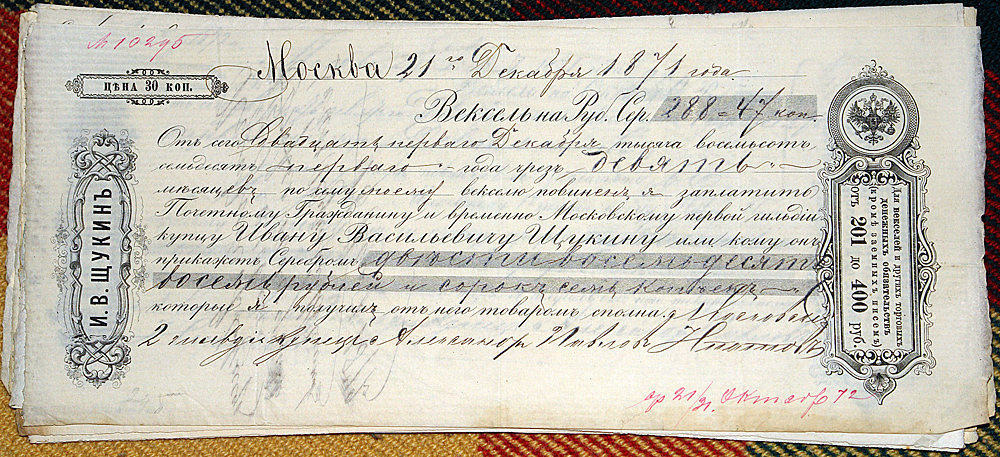 № 10295
Москва 21го Декабря 1871 года.
ЦѢНА 30 КОП.
Вексель на Руб. Сер. 288 = 47 коп.
Отъ сего Двадцать перваго Декабря тысяча восемьсотъ
семьдесятъ перваго года чрезъ девять
мѣсяцевъ по сему моему векселю повиненъ я заплатить
Почетному Гражданину и временно Московскому первой гильдіи
купцу Ивану Васильевичу Щукину или кому онъ
прикажетъ Серебромъ двѣсти восемьдесятъ
восемь рублей и сорокъ семь копѣекъ
которые я получилъ отъ него товаромъ сполна
2 гильдіи купецъ Александр Павлов
21/21 Октяб. 72
И. В. ЩУКИНЪ
Для векселей и другихъ торговыхъ
денежныхъ обязательствъ
(кромѣ заемныхъ писемъ)
отъ 201 до 400 руб.